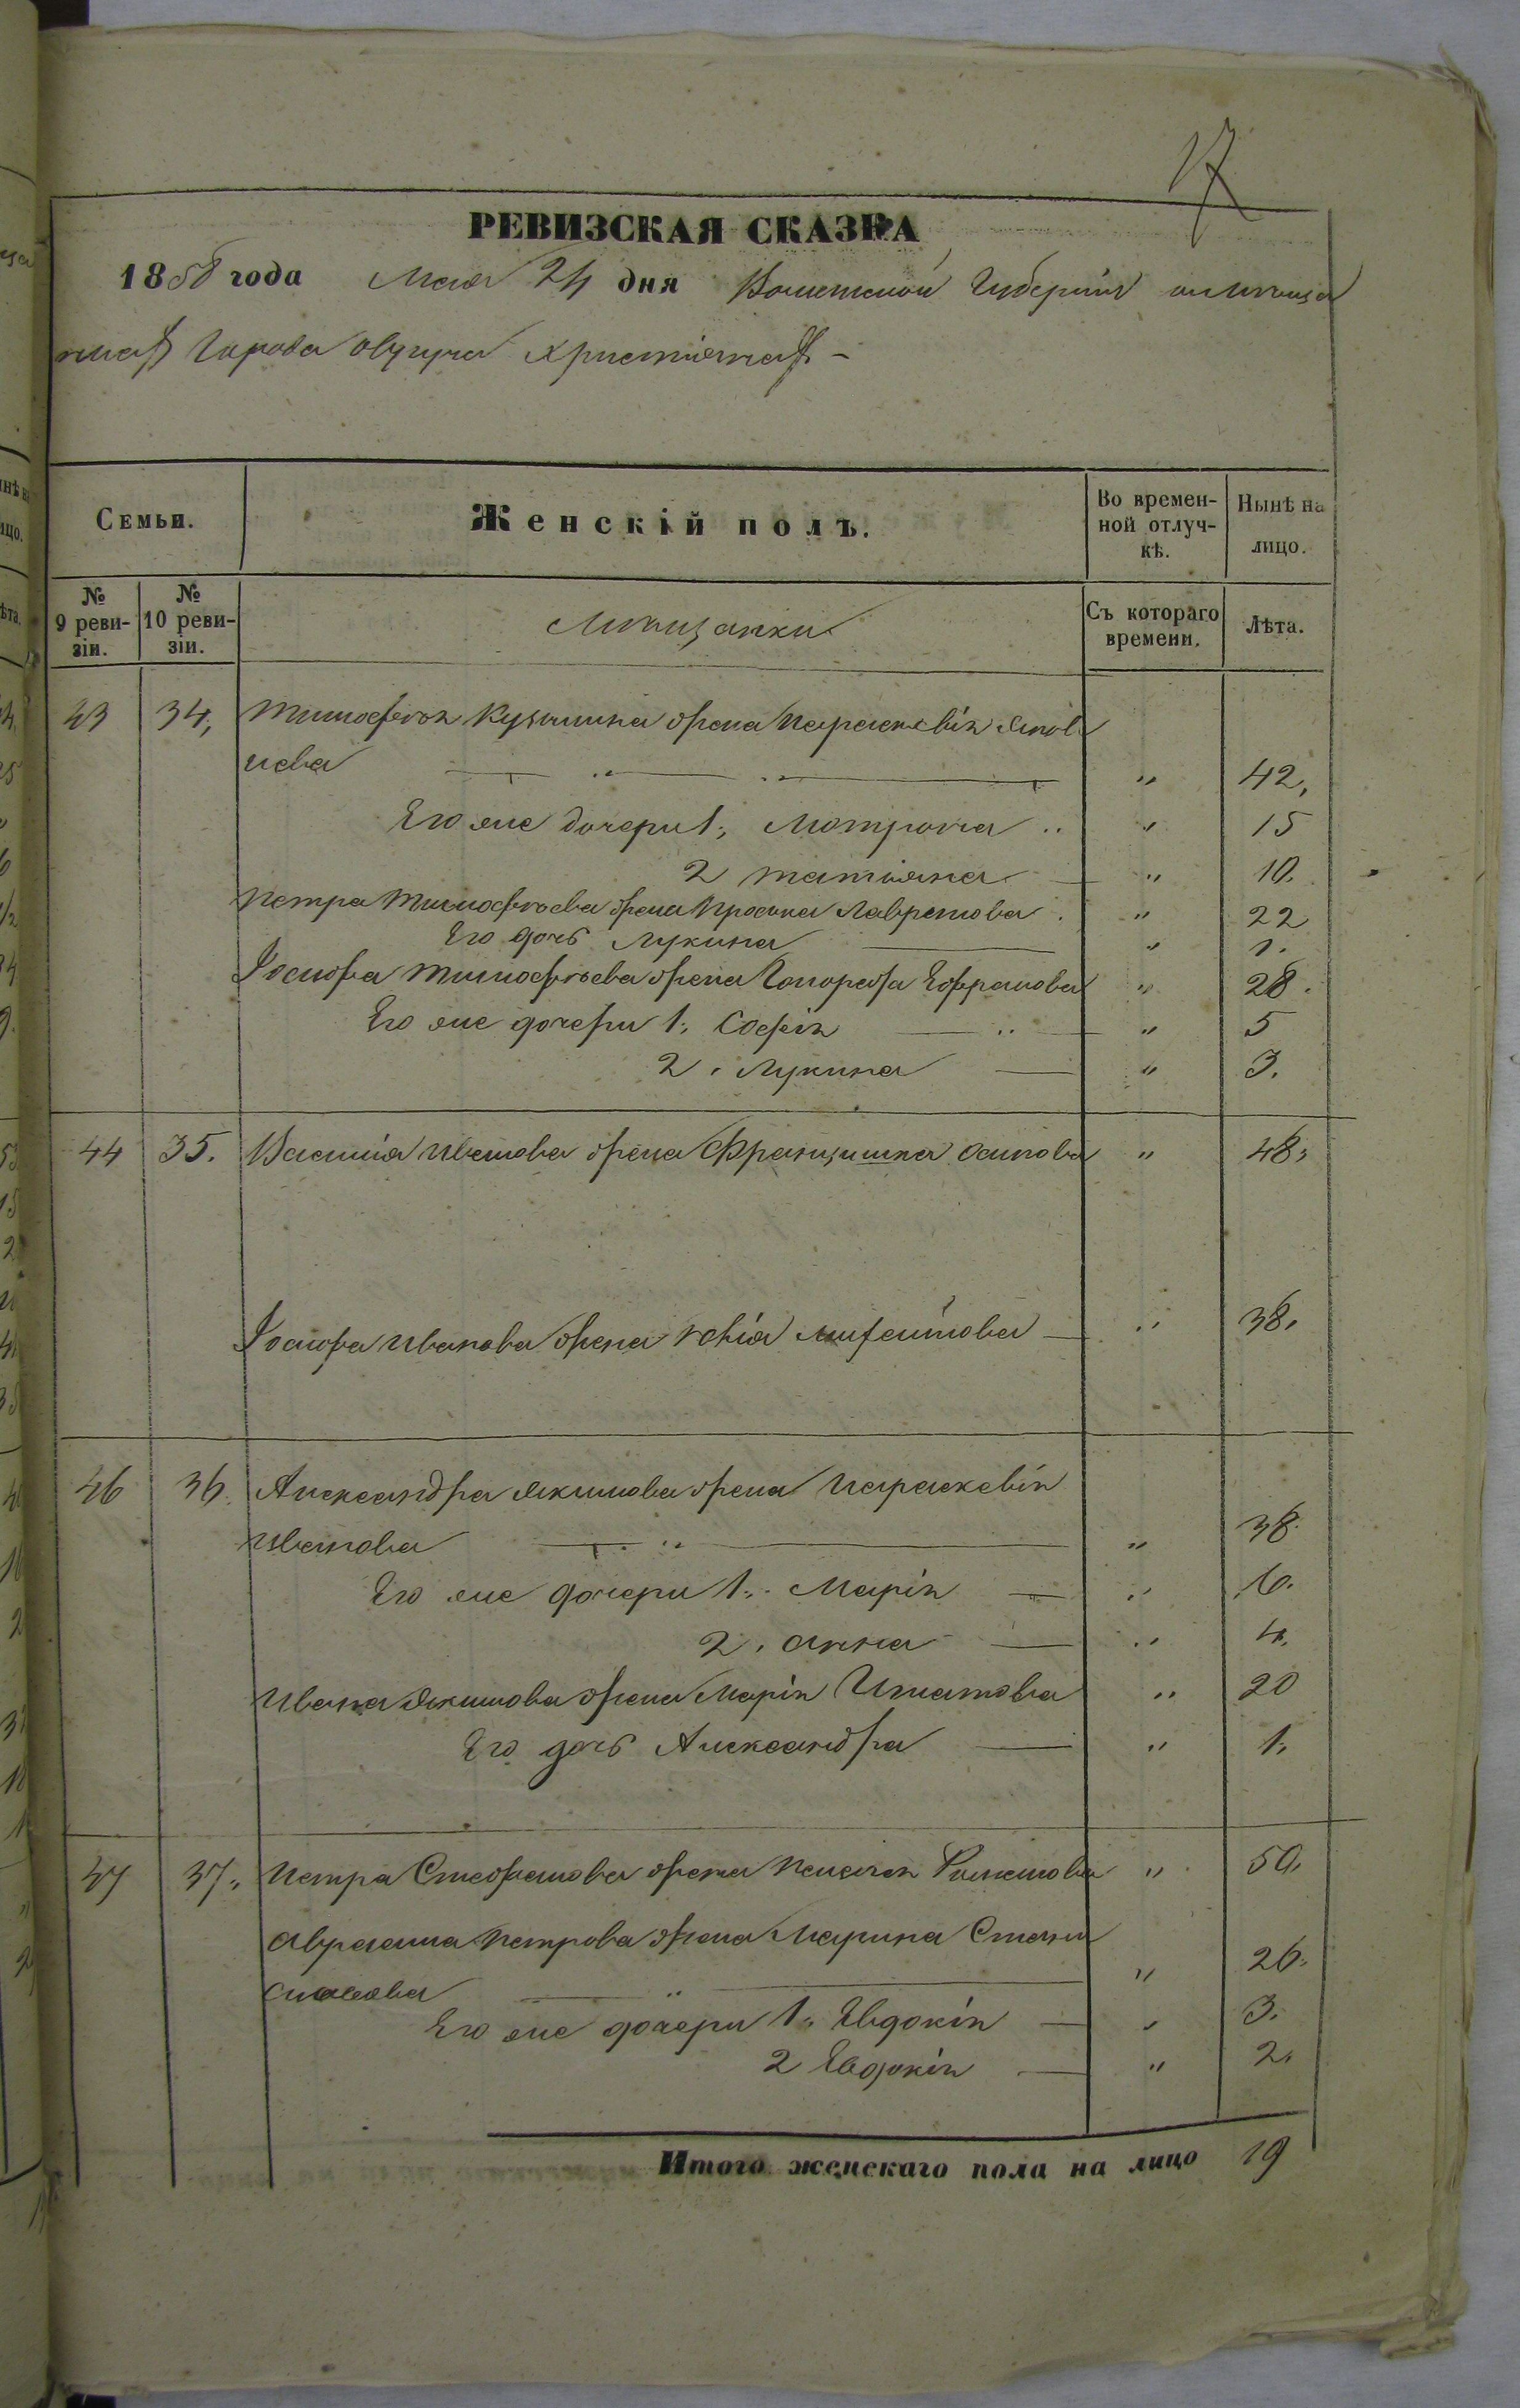 17
РЕВИЗСКАЯ СКАЗКА
1858 года Мая 24 дня Волынской Губерніи о мѣща
нахъ Города Овруча Христіянахъ –
Семьи. Женскій полъ. Во времен-ной отлуч-кѣ. Нынѣ на лицо.
№ 9 реви-зіи. № 10 реви-зіи. Мѣщанки Съ котораго времени. Лѣта.
43 34, Тимофея Кузьмина жена Параскевія Яков
лева " 42,
Его же дочери 1, Мотрона " 15
2 Татіяна " 10.
Петра Тимофѣева жена Просина Лавренова " 22
Его дочь Лукина " 1.
Іосифа Тимофѣева жена Гонората " 28.
Его же дочери 1, Софія " 5
2. Лукина " 3.
44 35. Василія Иванова жена Францишка Осипова " 48,
Іосифа Иванова жена " 38.
46 36. Александра Якимова жена Параскевія
Иванова " 38.
Его же дочери 1. Марія " 6.
2. Анна " 4.
Ивана Якимова жена Марія Игнатова " 20
Его дочь Александра " 1.
47 37. Петра Стефанова жена Пелагея " 50.
Авраама Петрова жена Марина Стани
славова " 26.
Его же дочери 1. Евдокія " 3.
2 Евдокія " 2.
Итого женскаго пола на лицо 19